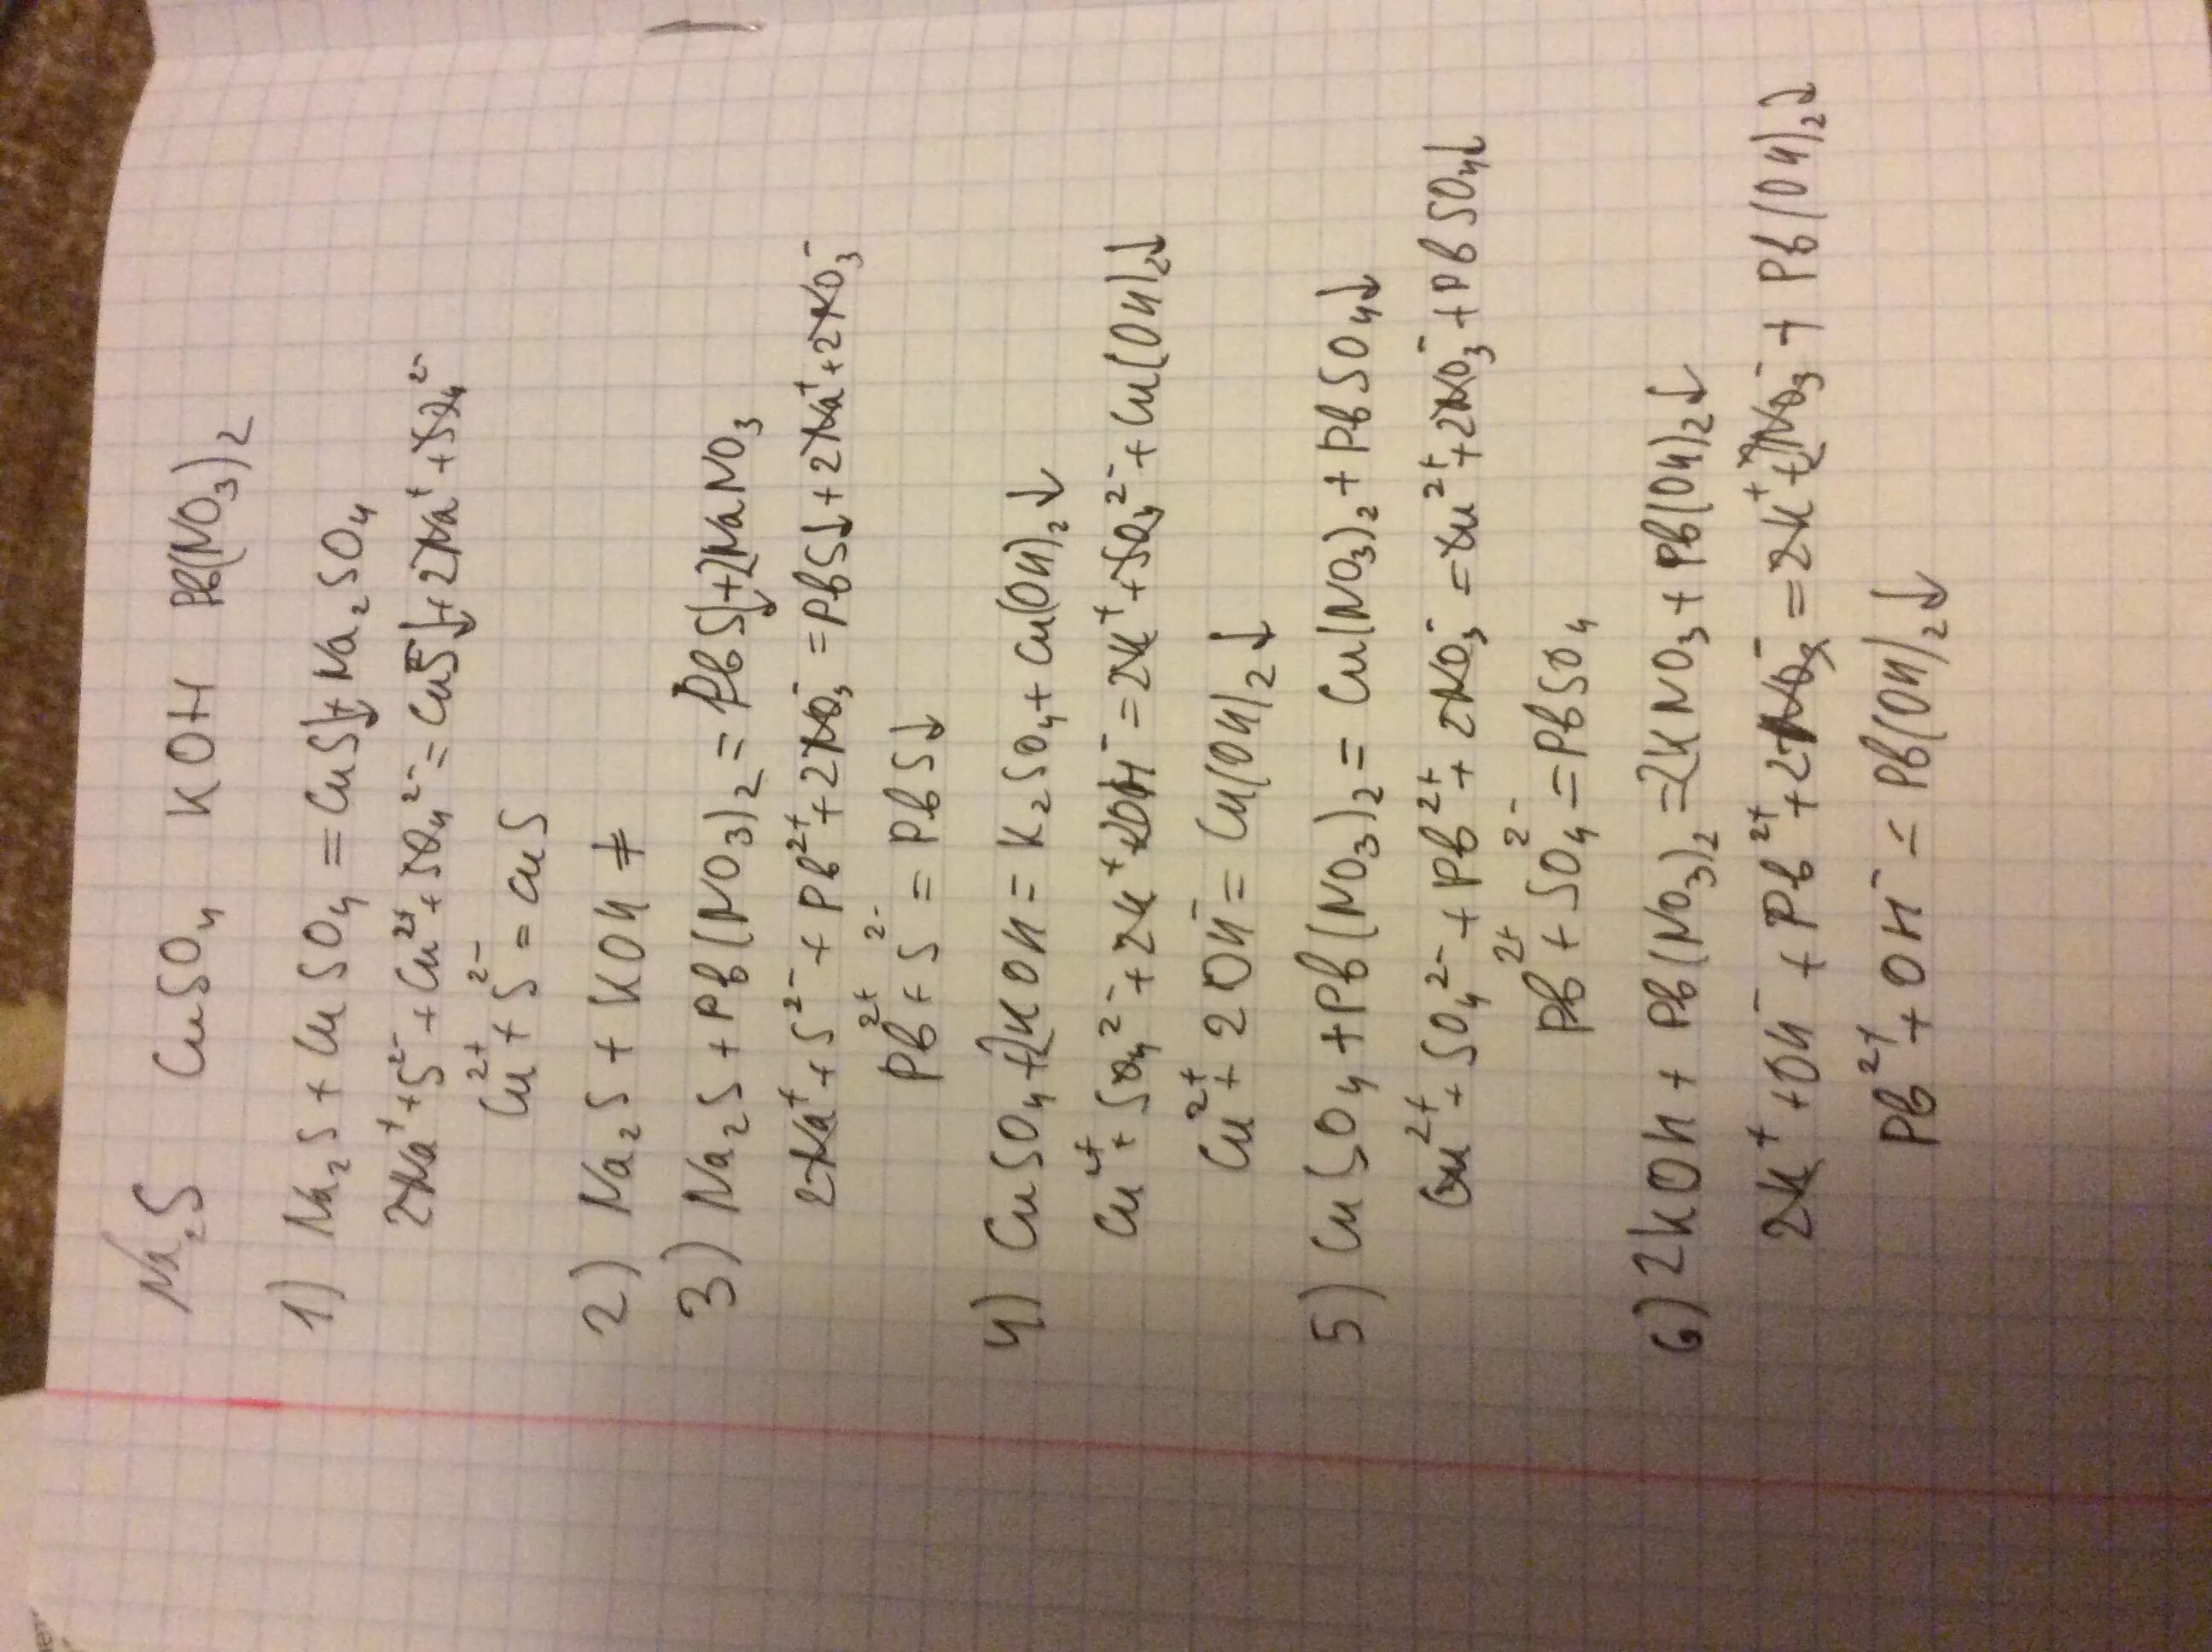 Na₂S CuSO₄ KOH Pb(NO₃)₂
1) Na₂S + CuSO₄ = CuS↓ + Na₂SO₄
2Na⁺ + S²⁻ + Cu²⁺ + SO₄²⁻ = CuS↓ + 2Na⁺ + SO₄²⁻
Cu²⁺ + S²⁻ = CuS
2) Na₂S + KOH ≠
3) Na₂S + Pb(NO₃)₂ = PbS↓ + 2NaNO₃
2Na⁺ + S²⁻ + Pb²⁺ + 2NO₃⁻ = PbS↓ + 2Na⁺ + 2NO₃⁻
Pb²⁺ + S²⁻ = PbS↓
4) CuSO₄ + 2KOH = K₂SO₄ + Cu(OH)₂↓
Cu²⁺ + SO₄²⁻ + 2K⁺ + 2OH⁻ = 2K⁺ + SO₄²⁻ + Cu(OH)₂↓
Cu²⁺ + 2OH⁻ = Cu(OH)₂↓
5) CuSO₄ + Pb(NO₃)₂ = Cu(NO₃)₂ + PbSO₄↓
Cu²⁺ + SO₄²⁻ + Pb²⁺ + 2NO₃⁻ = Cu²⁺ + 2NO₃⁻ + PbSO₄↓
Pb²⁺ + SO₄²⁻ = PbSO₄
6) 2KOH + Pb(NO₃)₂ = 2KNO₃ + Pb(OH)₂↓
2K⁺ + OH⁻ + Pb²⁺ + 2NO₃⁻ = 2K⁺ + 2NO₃⁻ + Pb(OH)₂↓
Pb²⁺ + OH⁻ = Pb(OH)₂↓